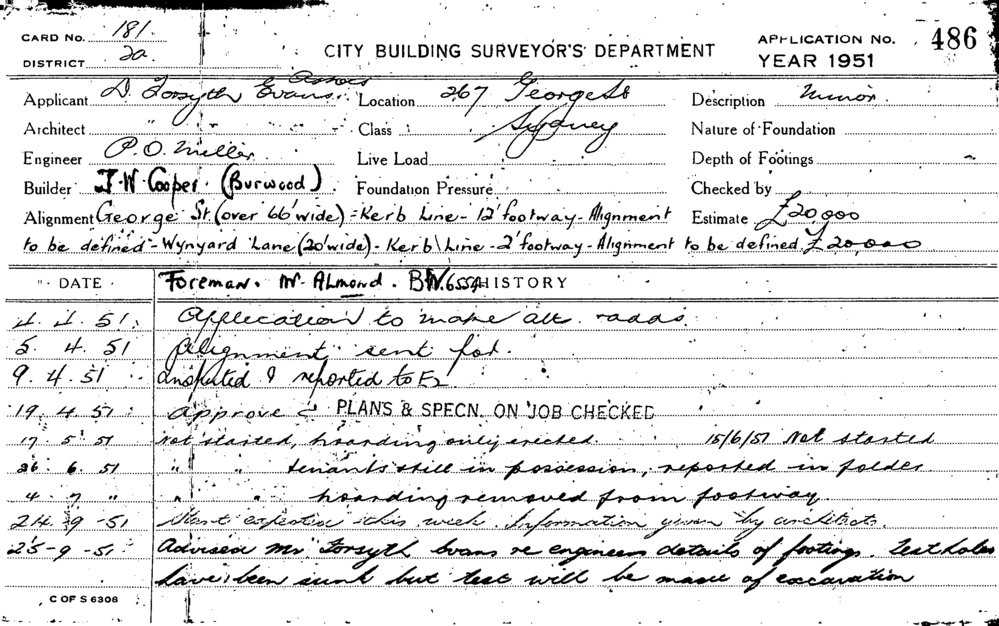 CARD No. 181
DISTRICT 2a
CITY BUILDING SURVEYOR'S DEPARTMENT
APPLICATION No. 486
YEAR 1951
Applicant D. Forsyth Evans Assocs Location 267 George St Description Minor
Architect " " Class Sydney Nature of Foundation
Engineer P.O. Miller Live Load Depth of Footings
Builder J.W. Cooper. (Burwood) Foundation Pressure Checked by
Alignment George St (over 66' wide) - Kerb Line - 12' footway - Alignment Estimate £20,000
to be defined - Wynyard Lane (20' wide) - Kerb Line - 2' footway - Alignment to be defined £20,000
DATE Foreman. Mr Almond. BW6554 HISTORY
4. 4. 51. Application to make alt. & adds.
5. 4. 51 Alignment sent for.
9. 4. 51 Inspected & reported to
19. 4. 51 Approve PLANS & SPECN. ON JOB CHECKED
17 5 51 Not started, hoarding only erected 15/6/51 Not started
26. 6. 51 " " tenants still in possession, reported in folder
4 7 " " " hoarding removed from footway.
24 9 -51 Start expected this week. Information given by architects.
25-9-51 Advised Mr Forsyth Evans re engineers details of footings. Test holes
have been sunk but test will be made of excavation
C OF S 6306